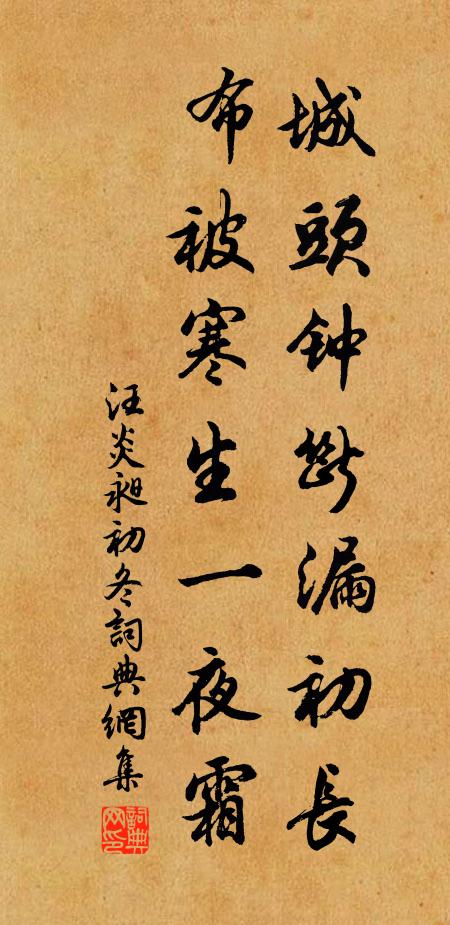 城頭钟斷漏初長
布被寒生一夜霜
汪炎昶初冬詞典網集
詞典网印